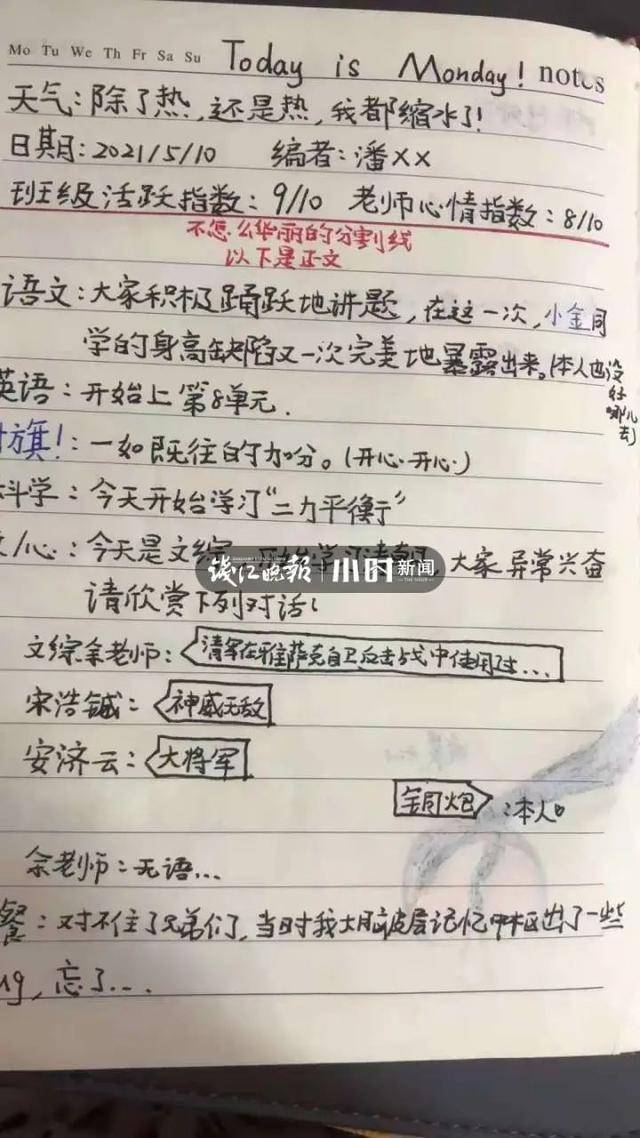 Mo Tu We Th Fr Sa Su Today is Monday! notes
天气:除了热,还是热,我都缩水了!
日期:2021/5/10 编者:潘XX
班级活跃指数:9/10 老师心情指数:8/10
不怎么华丽的分割线
以下是正文
语文:大家积极踊跃地讲题,在这一次,小金同
学的身高缺陷又一次完美地暴露出来。(本人也没
好
哪儿
去)
英语:开始上第8单元.
旗!:一如既往的加分。(开心·开心·)
科学:今天开始学习“二力平衡”
心:今天是文综 大家异常兴奋
钱江晚报 小时新闻
请欣赏下列对话!
文综余老师:清军在雅萨克自卫反击战中使用过...
宋浩铖:神威无敌
安济云:大将军
铜炮:本人
余老师:无语...
餐:对不住了兄弟们,当时我大脑皮层记忆中枢出了一些
忘了...